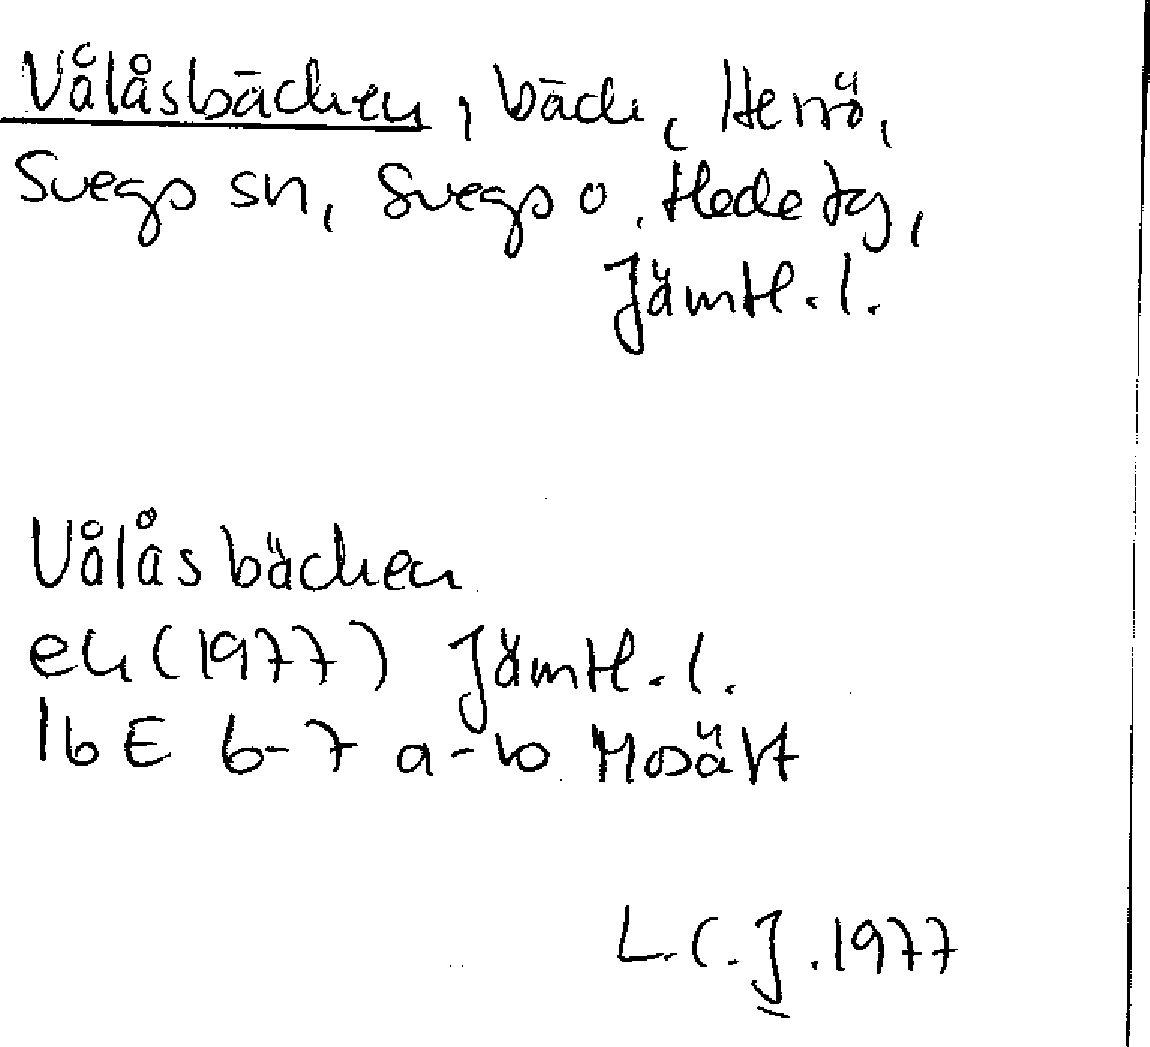 Vålåsbäcken, bäck, Herrö,
Svegs sn, Svegs o. Hede tg,
Jämtl. l.
Vålåsbäcken
ek (1977) Jämtl. l.
16E 6-7 a-b Mosätt
L.C.J. 1977